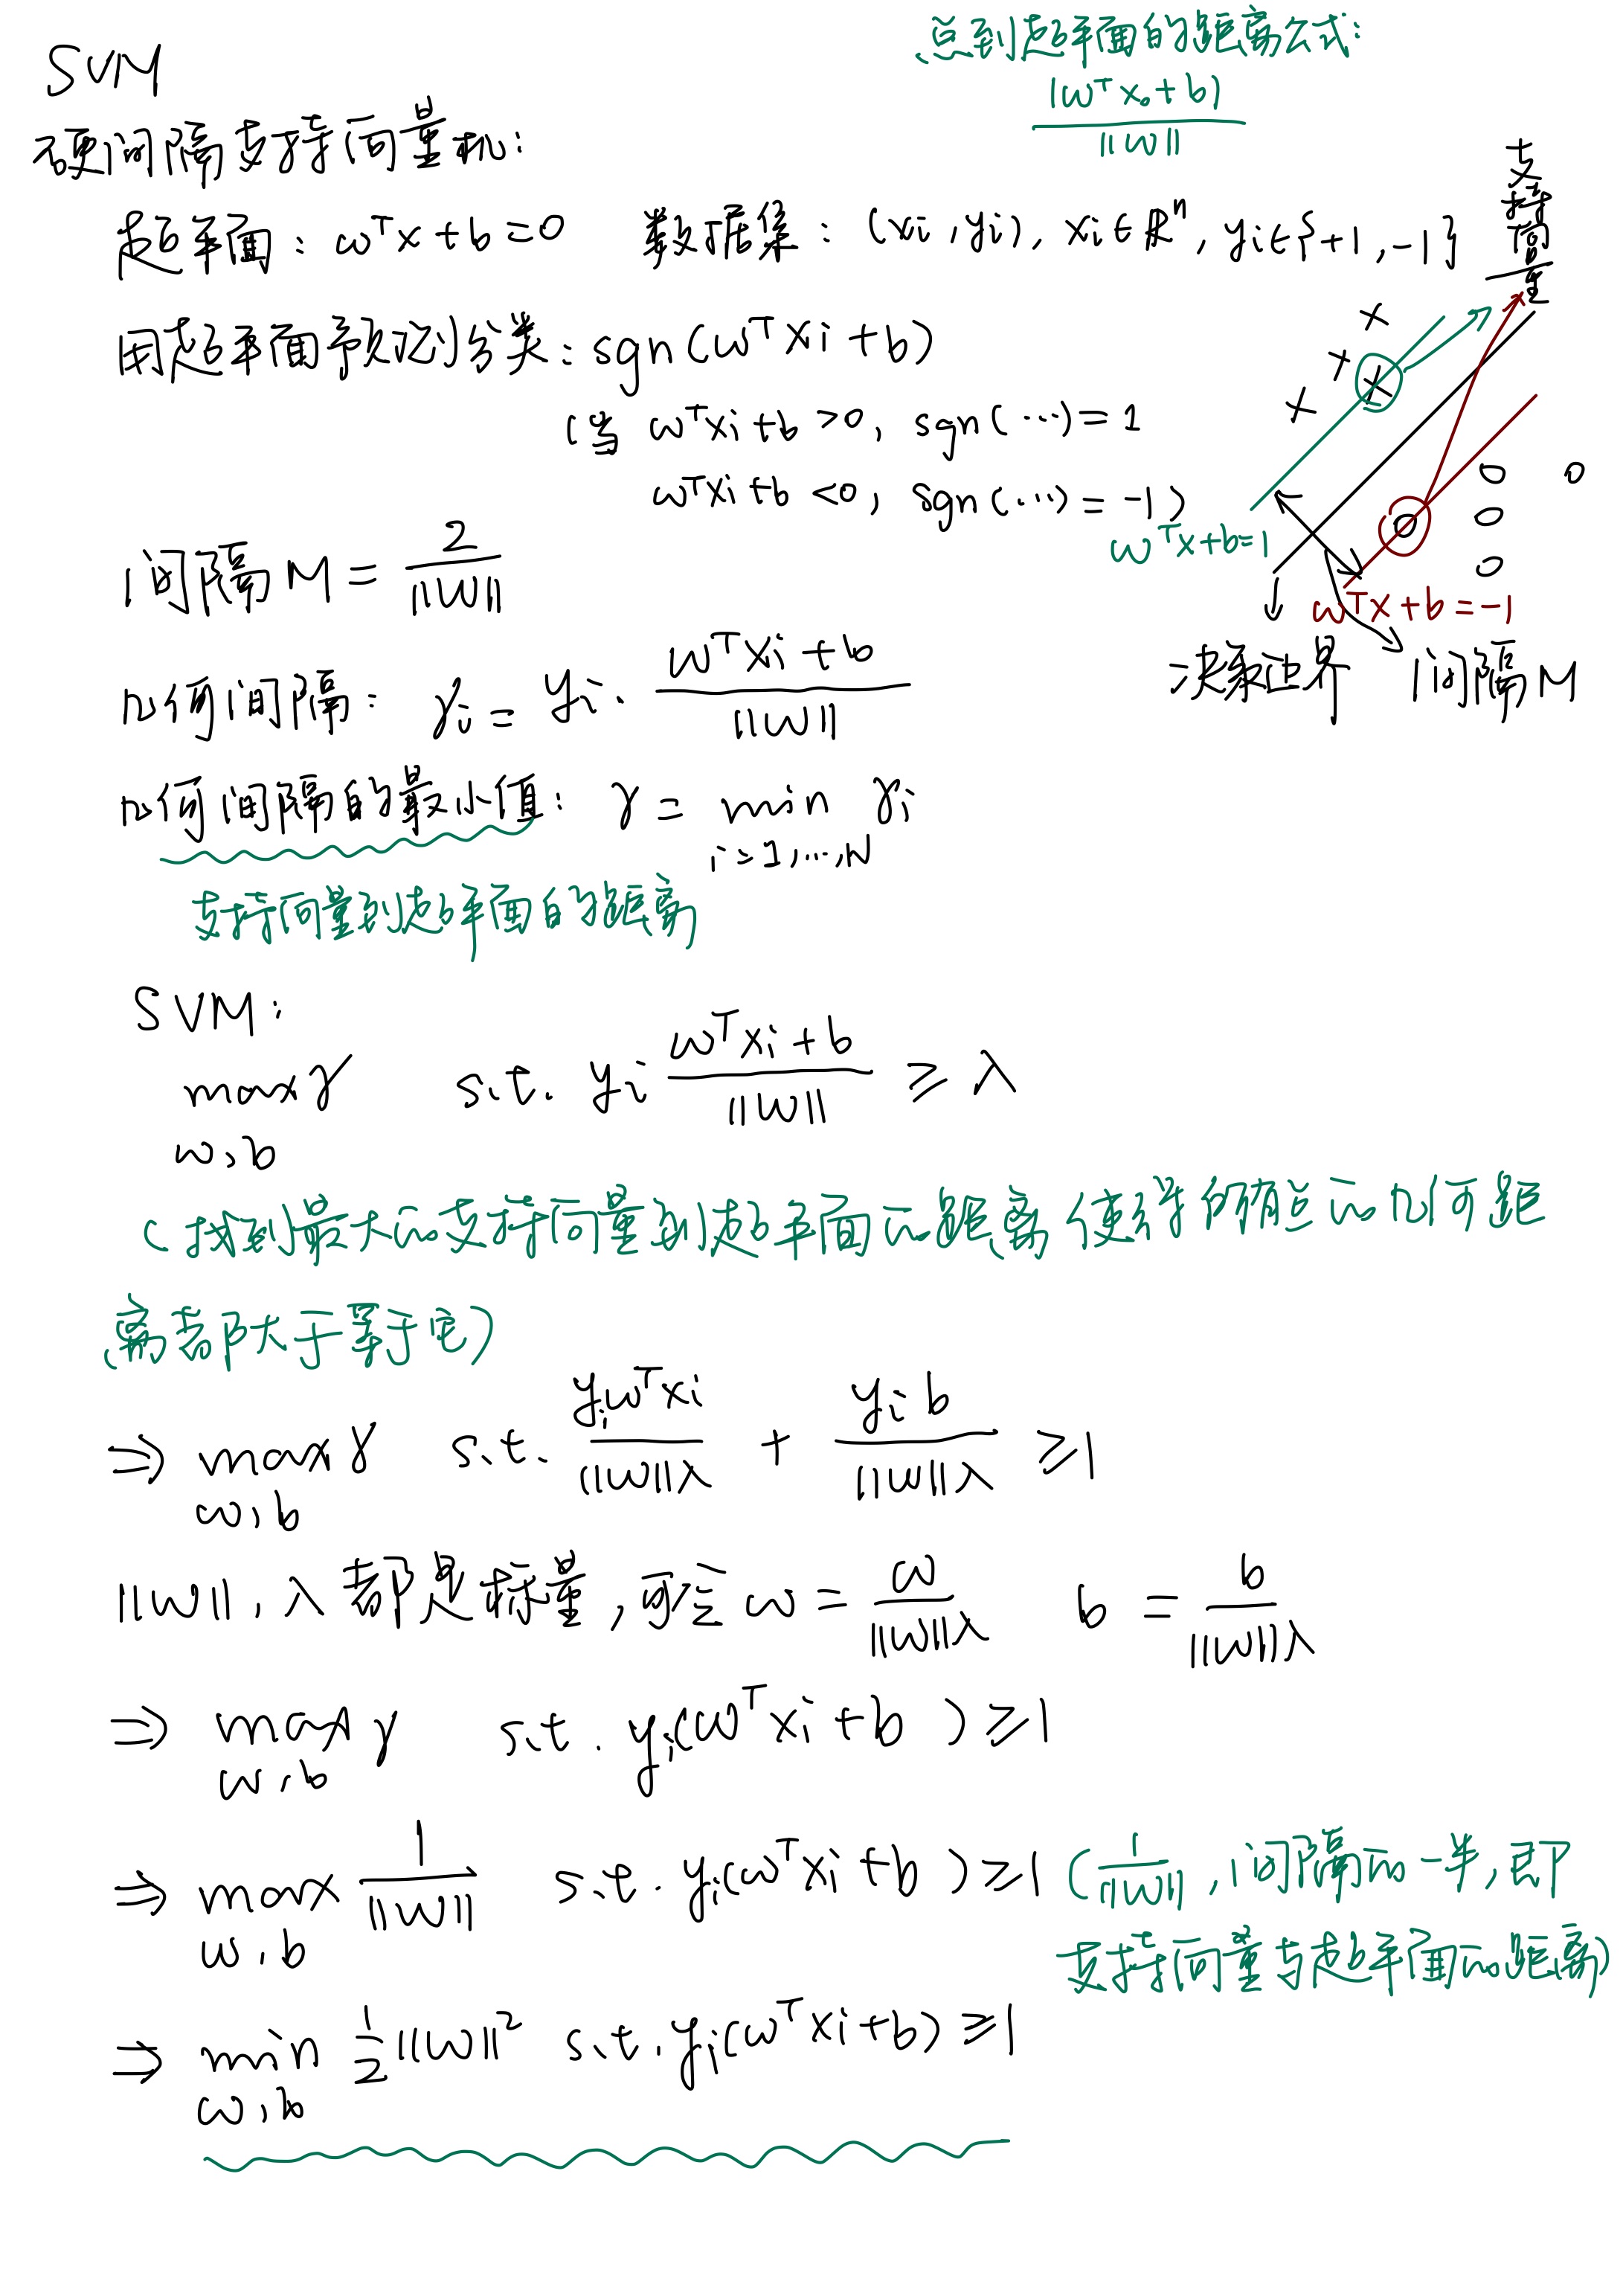 SVM
点到超平面的距离公式:
|w^T x_0 + b|
||w||
硬间隔支持向量机:
超平面: w^T x + b = 0 数据集: (x_i, y_i), x_i ∈ R^n, y_i ∈ {+1, -1}
支持向量
用超平面预测分类: sgn(w^T x_i + b)
(当 w^T x_i + b > 0, sgn(...) = 1
w^T x_i + b < 0, sgn(...) = -1)
w^T x + b = 1
w^T x + b = -1
决策边界 间隔 M
间隔 M = 2 / ||w||
几何间隔: γ_i = y_i · (w^T x_i + b) / ||w||
几何间隔的最小值: γ = min γ_i
i = 1, ..., N
支持向量到超平面的距离
SVM:
max γ s.t. y_i (w^T x_i + b) / ||w|| ≥ λ
w, b
(找到最大的支持向量到超平面的距离 使得所有点的几何距
离都大于等于它)
⇒ max γ s.t. y_i w^T x_i / (||w||λ) + y_i b / (||w||λ) ≥ 1
w, b
||w||, λ 都是标量, 可令 w = w / (||w||λ) b = b / (||w||λ)
⇒ max γ s.t. y_i(w^T x_i + b) ≥ 1
w, b
⇒ max 1 / ||w|| s.t. y_i(w^T x_i + b) ≥ 1 (1 / ||w||, 间隔的一半, 即
w, b
支持向量与超平面的距离)
⇒ min 1/2 ||w||^2 s.t. y_i(w^T x_i + b) ≥ 1
w, b